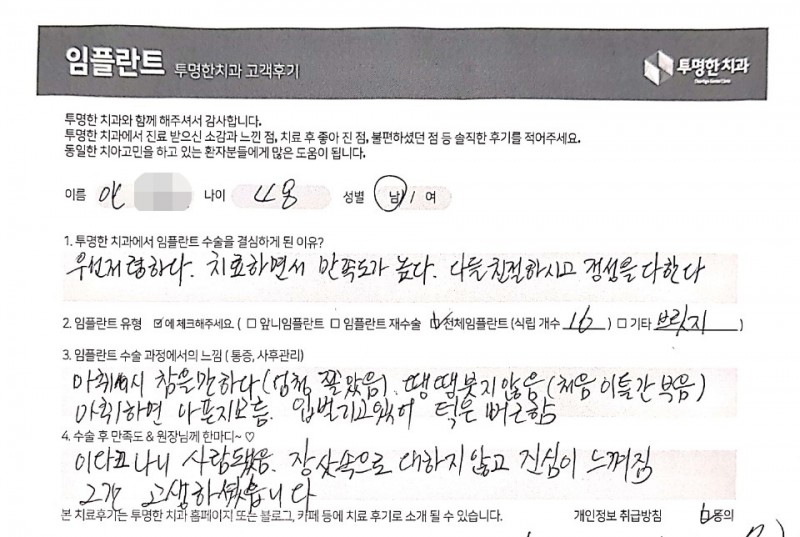 임플란트 투명한치과 고객후기
투명한치과
투명한 치과와 함께 해주셔서 감사합니다.
투명한 치과에서 진료 받으신 소감과 느낀 점, 치료 후 좋아 진 점, 불편하셨던 점 등 솔직한 후기를 적어주세요.
동일한 치아고민을 하고 있는 환자분들에게 많은 도움이 됩니다.
이름 안 나이 성별 남 / 여
1. 투명한 치과에서 임플란트 수술을 결심하게 된 이유?
우선저렴하다. 치료하면서 만족도가 높다. 다들친절하시고 정성을 다한다
2. 임플란트 유형 ☑에 체크해주세요. ( □ 앞니임플란트 □ 임플란트 재수술 ☑ 전체임플란트 (식립 개수 16 ) □ 기타 브릿지 )
3. 임플란트 수술 과정에서의 느낌 ( 통증, 사후관리)
마취시 참을만하다 (엄청 쫄았음). 땡땡붓지않음 (처음 이틀간 붓음)
마취하면 아픈지모름. 입벌리고있어 턱은 뻐근함
4. 수술 후 만족도 & 원장님께 한마디~ ♡
이다고나니 사람됐음. 장삿속으로 대하지않고 진심이 느껴짐
그간 고생하셨습니다
본 치료후기는 투명한 치과 홈페이지 또는 블로그, 카페 등에 치료 후기로 소개 될 수 있습니다. 개인정보 취급방침 ☑동의